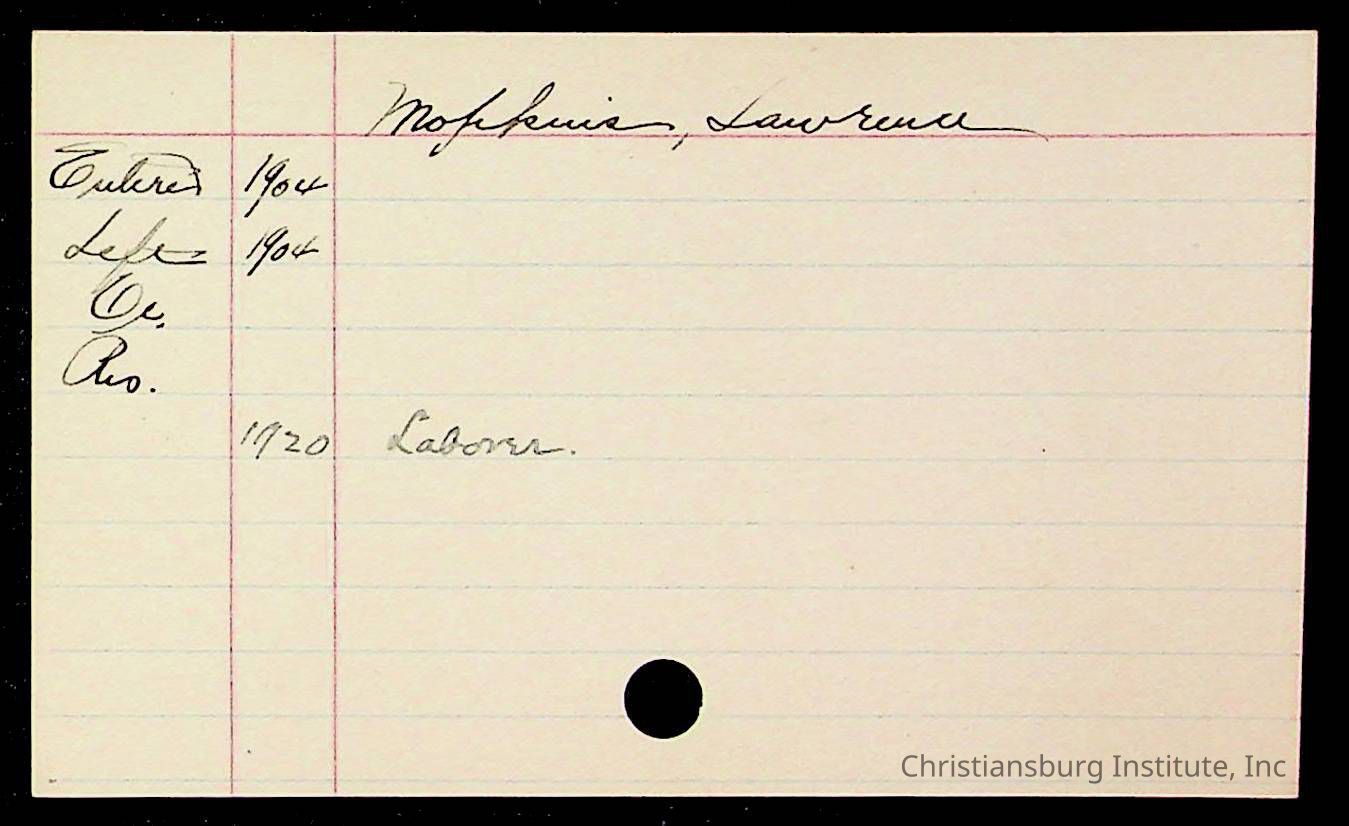 Mopkins, Lawrence
Entered 1904
Left 1904
Oc.
Res.
1920 Laborer.
Christiansburg Institute, Inc